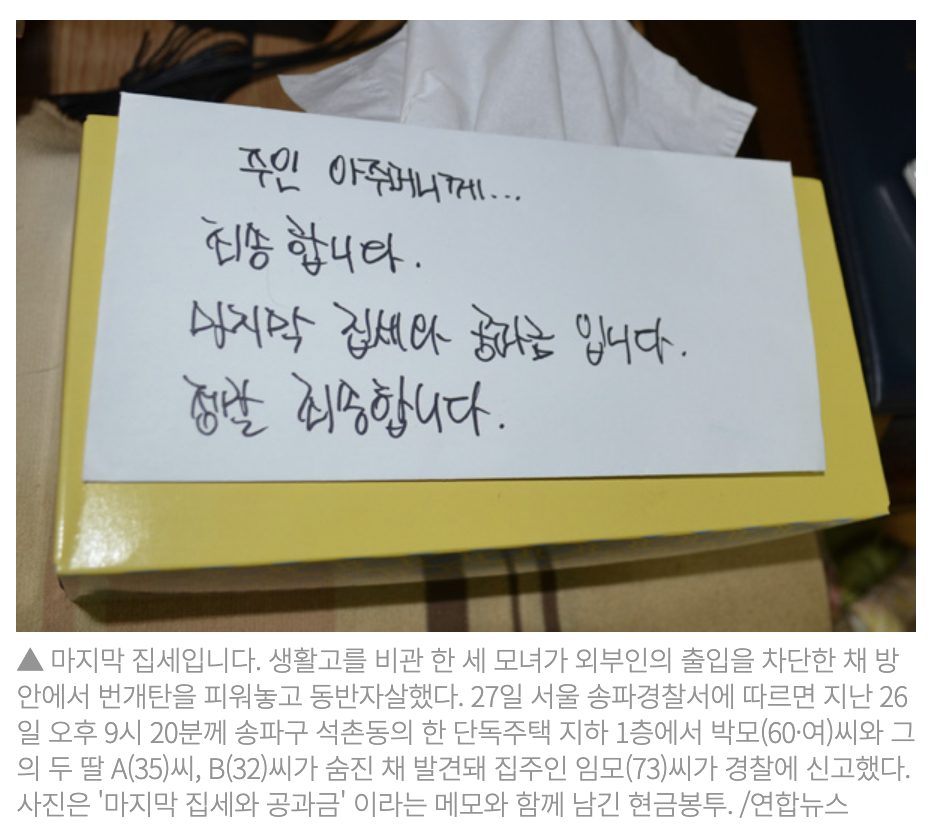 주인 아주머니께...
죄송합니다.
마지막 집세와 공과금 입니다.
정말 죄송합니다.
▲ 마지막 집세입니다. 생활고를 비관 한 세 모녀가 외부인의 출입을 차단한 채 방
안에서 번개탄을 피워놓고 동반자살했다. 27일 서울 송파경찰서에 따르면 지난 26
일 오후 9시 20분께 송파구 석촌동의 한 단독주택 지하 1층에서 박모(60·여)씨와 그
의 두 딸 A(35)씨, B(32)씨가 숨진 채 발견돼 집주인 임모(73)씨가 경찰에 신고했다.
사진은 '마지막 집세와 공과금' 이라는 메모와 함께 남긴 현금봉투. /연합뉴스